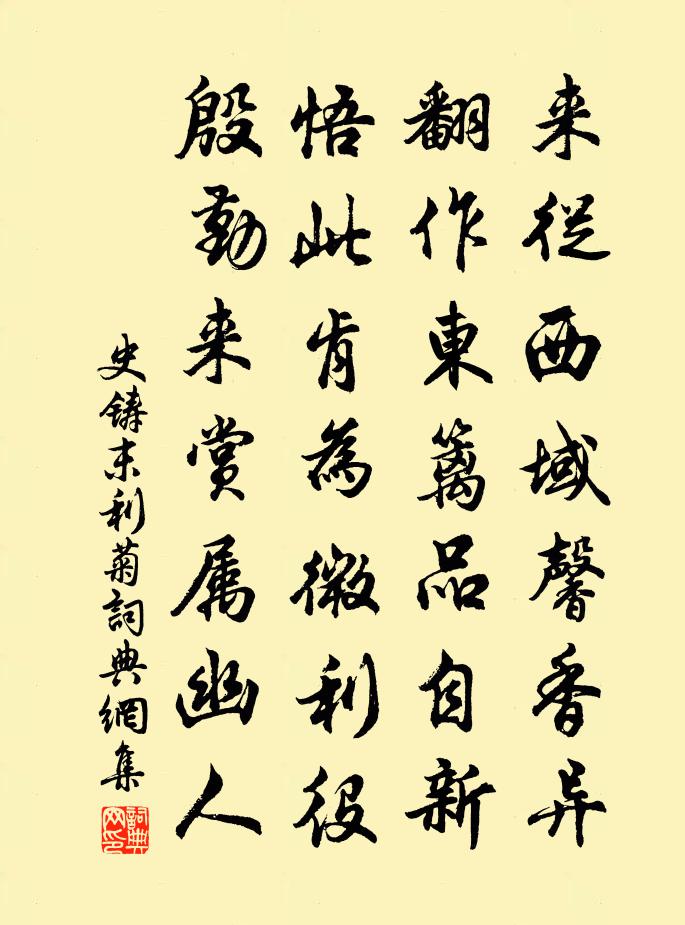 来從西域馨香异
翻作東籬品自新
悟此肯為微利役
殷勤来賞属幽人
史鑄末利菊詞典網集
詞典网印